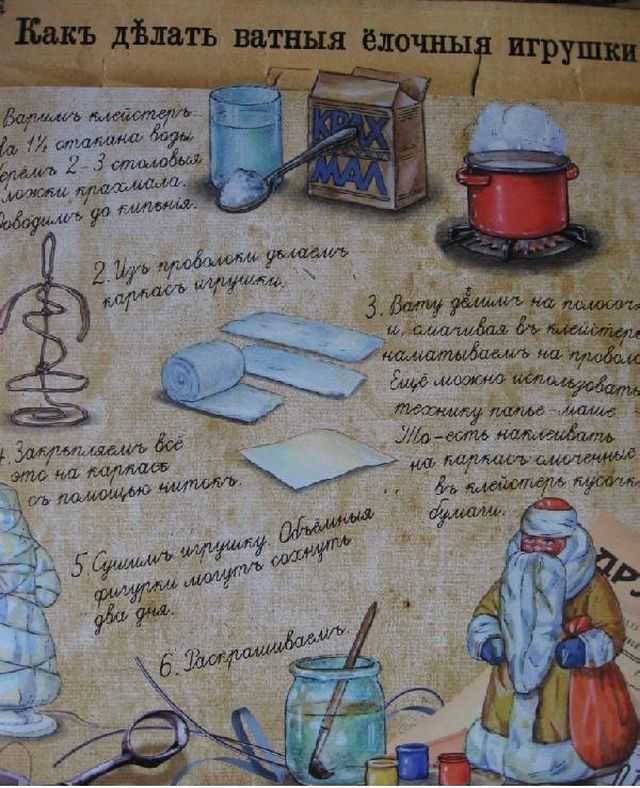 Какъ дѣлать ватныя ёлочныя игрушки
Варимъ клейстеръ.
На 1½ стакана воды
берёмъ 2-3 столовыя
ложки крахмала.
Доводимъ до кипѣнія.
КРАХ
МАЛ
2. Изъ проволоки дѣлаемъ
каркасъ игрушки.
3. Вату дѣлимъ на полосоч
и, смачивая въ клейстере
наматываемъ на проволо
Ещё можно использовать
технику папье-маше
То-есть наклеивать
на каркасъ смоченные
въ клейстеръ кусочк
бумаги.
4. Закрѣпляемъ всё
это на каркасѣ
съ помощью нитокъ.
5. Сушимъ игрушку. Объёмныя
фигурки могутъ сохнуть
два дня.
6. Раскрашиваемъ.
ДРУ